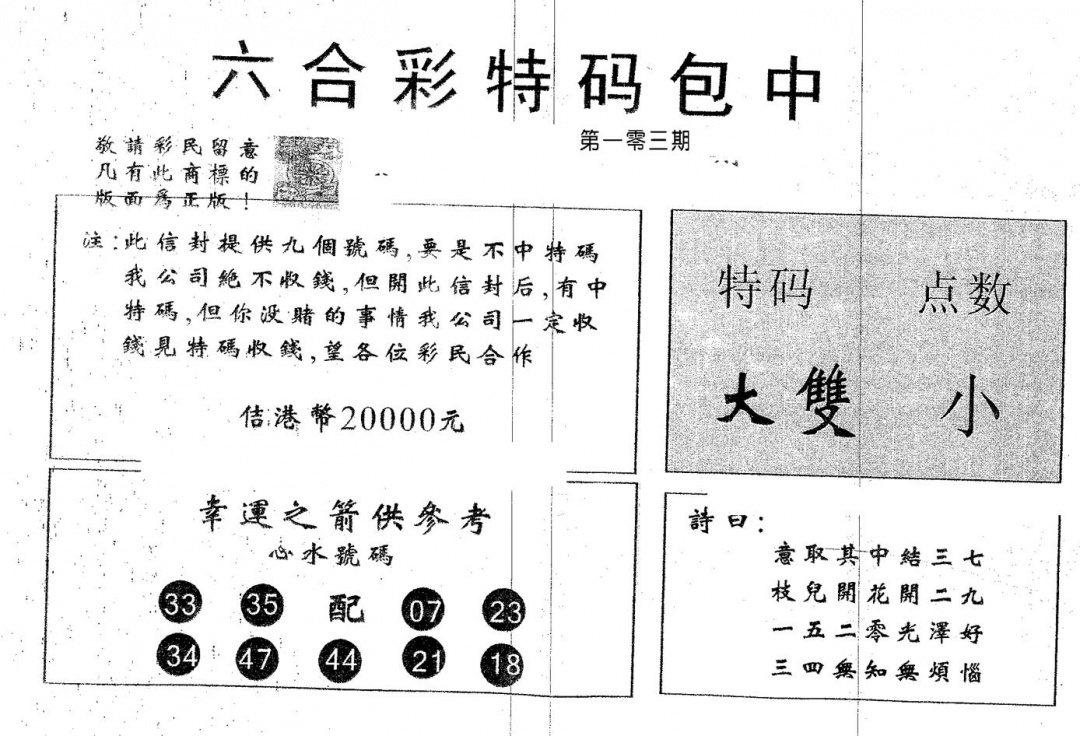 六合彩特码包中
第一零三期
敬請彩民留意
凡有此商標的
版面為正版！
注：此信封提供九個號碼，要是不中特碼
我公司絶不收錢，但開此信封后，有中
特碼，但你没賭的事情我公司一定收
錢見特碼收錢，望各位彩民合作
佶港幣20000元
特码 点数
大雙 小
幸運之箭供參考
心水號碼
33 35 配 07 23
34 47 44 21 18
詩曰：
意取其中結三七
枝兒開花開二九
一五二零光澤好
三四無知無煩惱